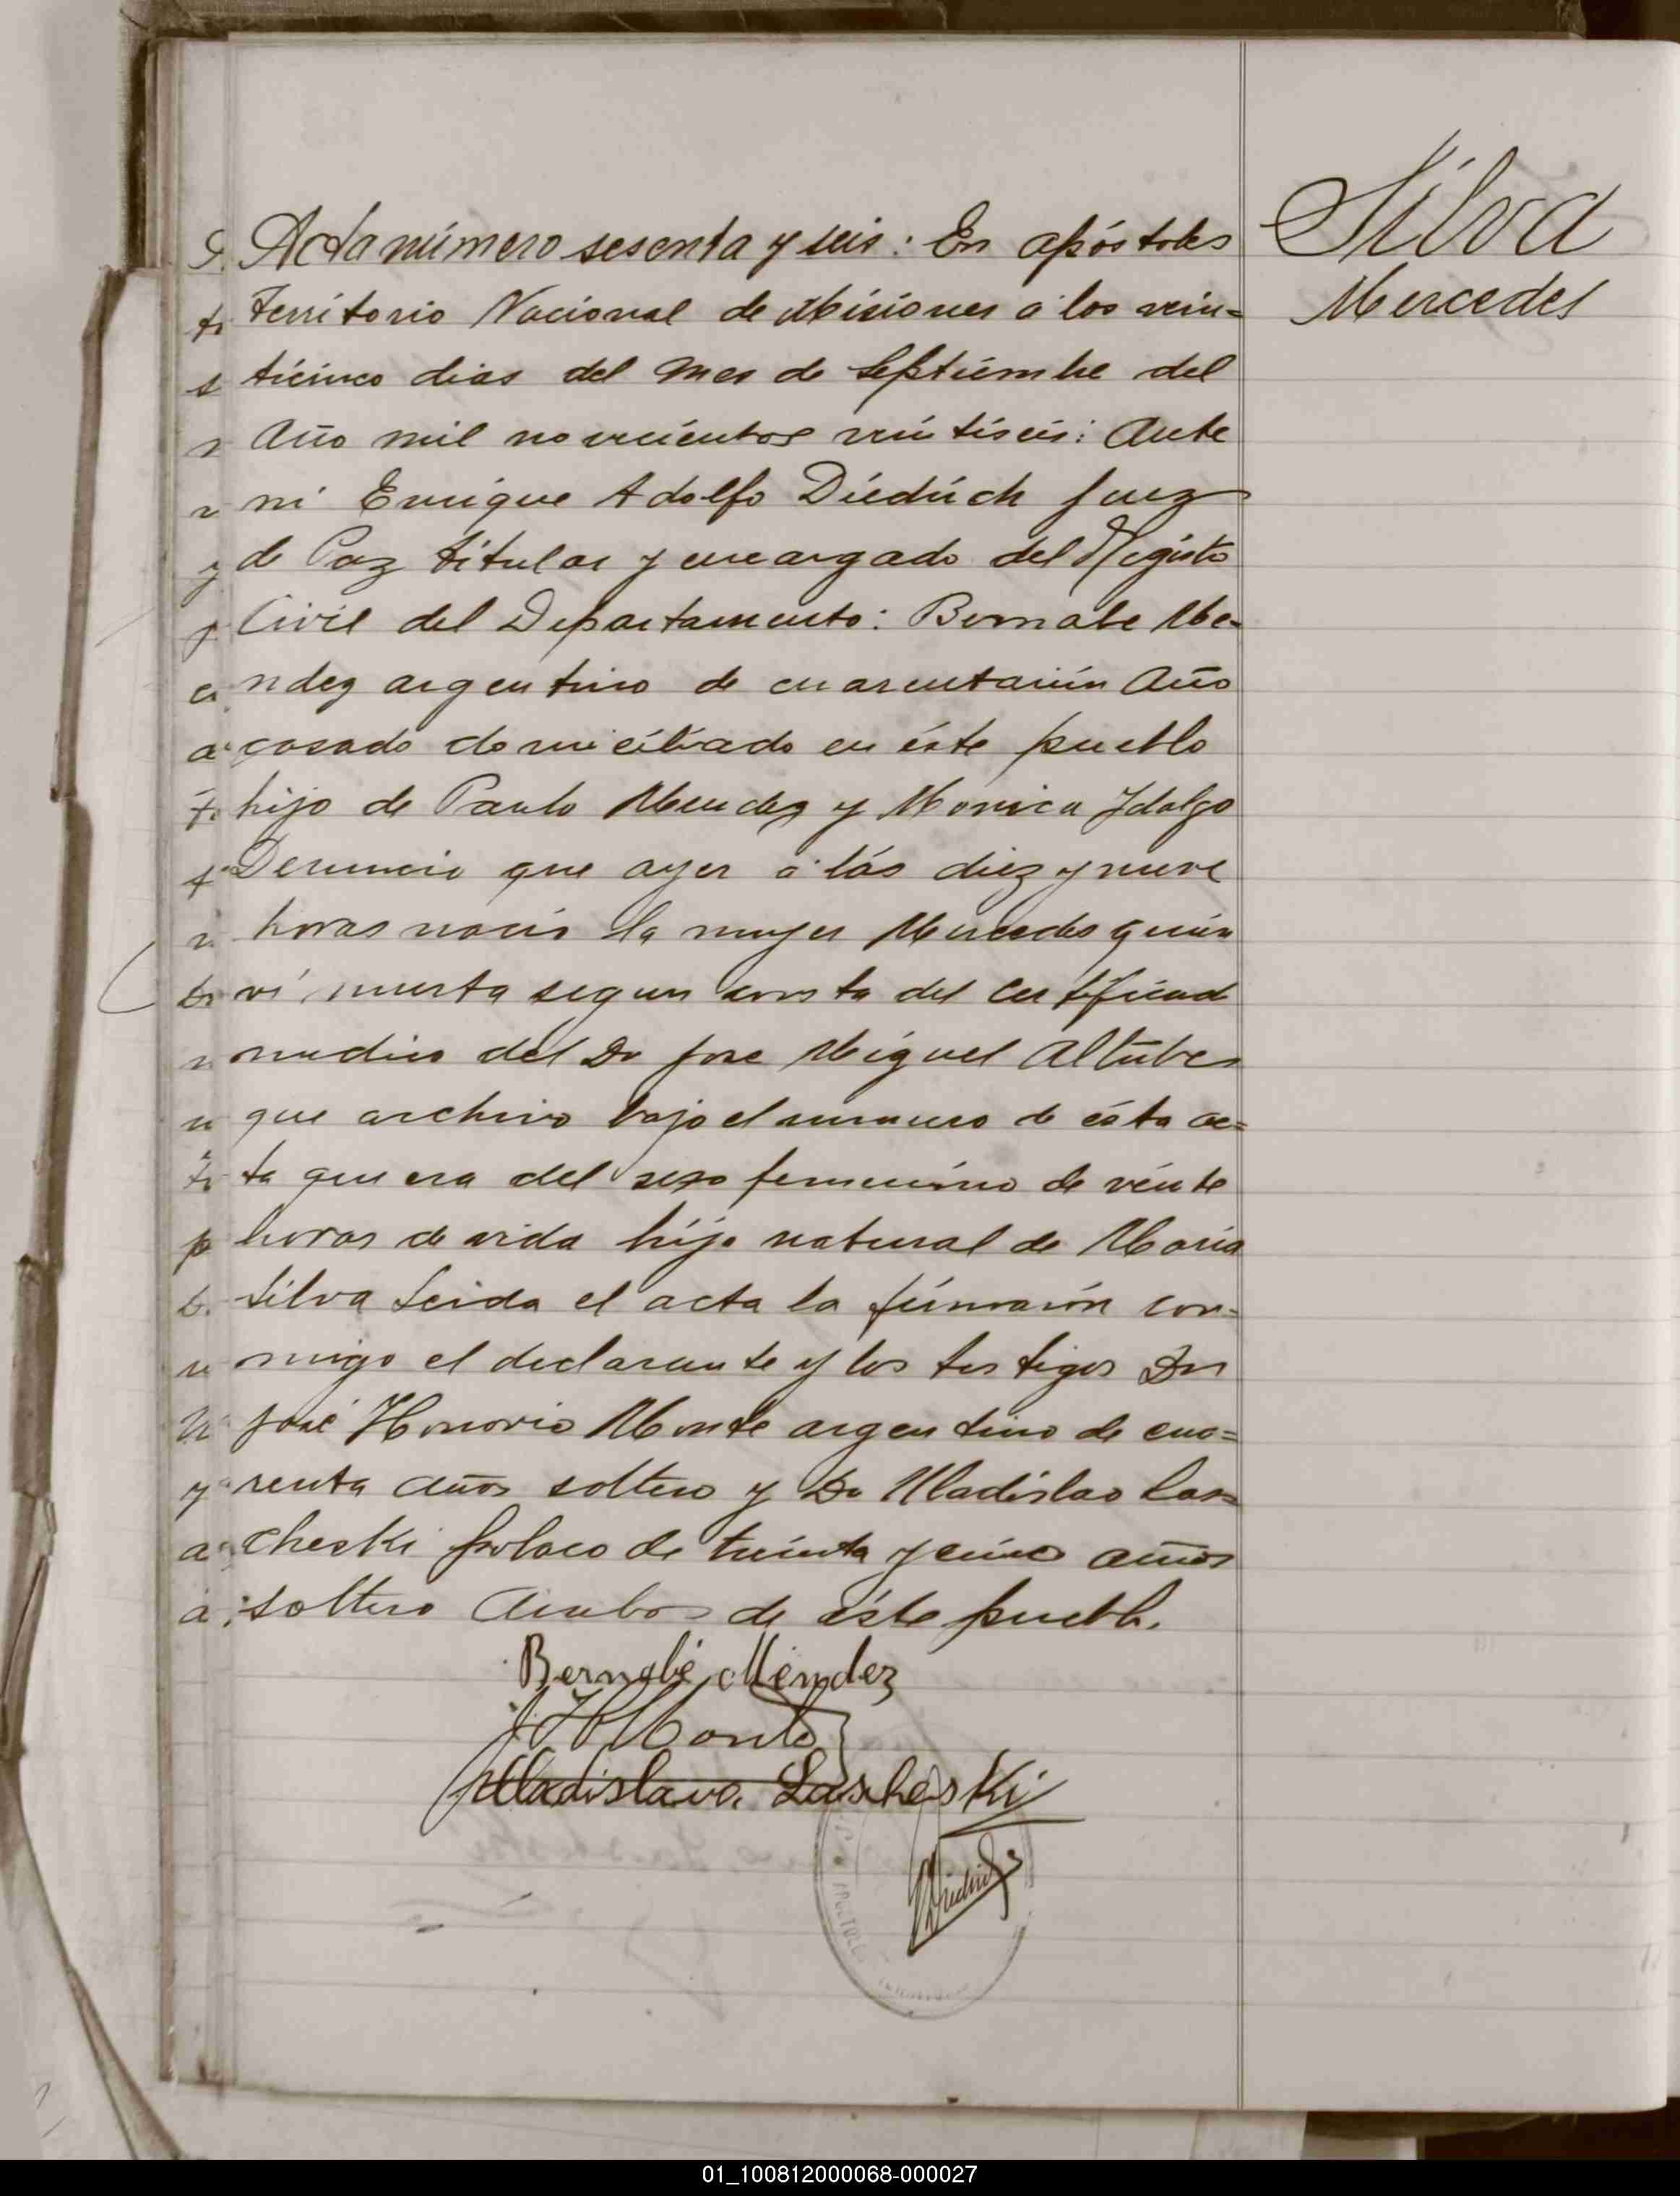 Silva
Mercedes
Acta número sesenta y seis: En apóstoles
Territorio Nacional de Misiones a los vein=
ticinco dias del mes de Septiembre del
Año mil novecientos veintiseis: Ante
mi Enrique Adolfo Diedrich Juez
de Paz titular y encargado del Registo
Civil del Departamento: Bernabe Me=
ndez argentino de cuarentaiún Año
casado domiciliado en éste pueblo
hijo de Paulo Mendez y Monica Idalgo
Denuncio que ayer á las diez y nueve
horas nacio la mujer Mercedes quien
vi muerta segun consta del Certificad
medico del Dr Jose Miguel Altube
que archivo bajo el numero de ésta ac=
ta que era del sexo femenino de veinte
horas de vida hija natural de Maria
Silva Leida el acta la firmarón con=
migo el declarante y los testigos Dn
José Honorio Monte argentino de cua=
renta años soltero y Dn Uladislao Las=
cheski polaco de treinta y cinco años
soltero Ambos de éste pueblo.
Bernabé Méndez
J H Monte
Uladislavo Lascheski
Diedrich
APOSTOLES
01_100812000068-000027